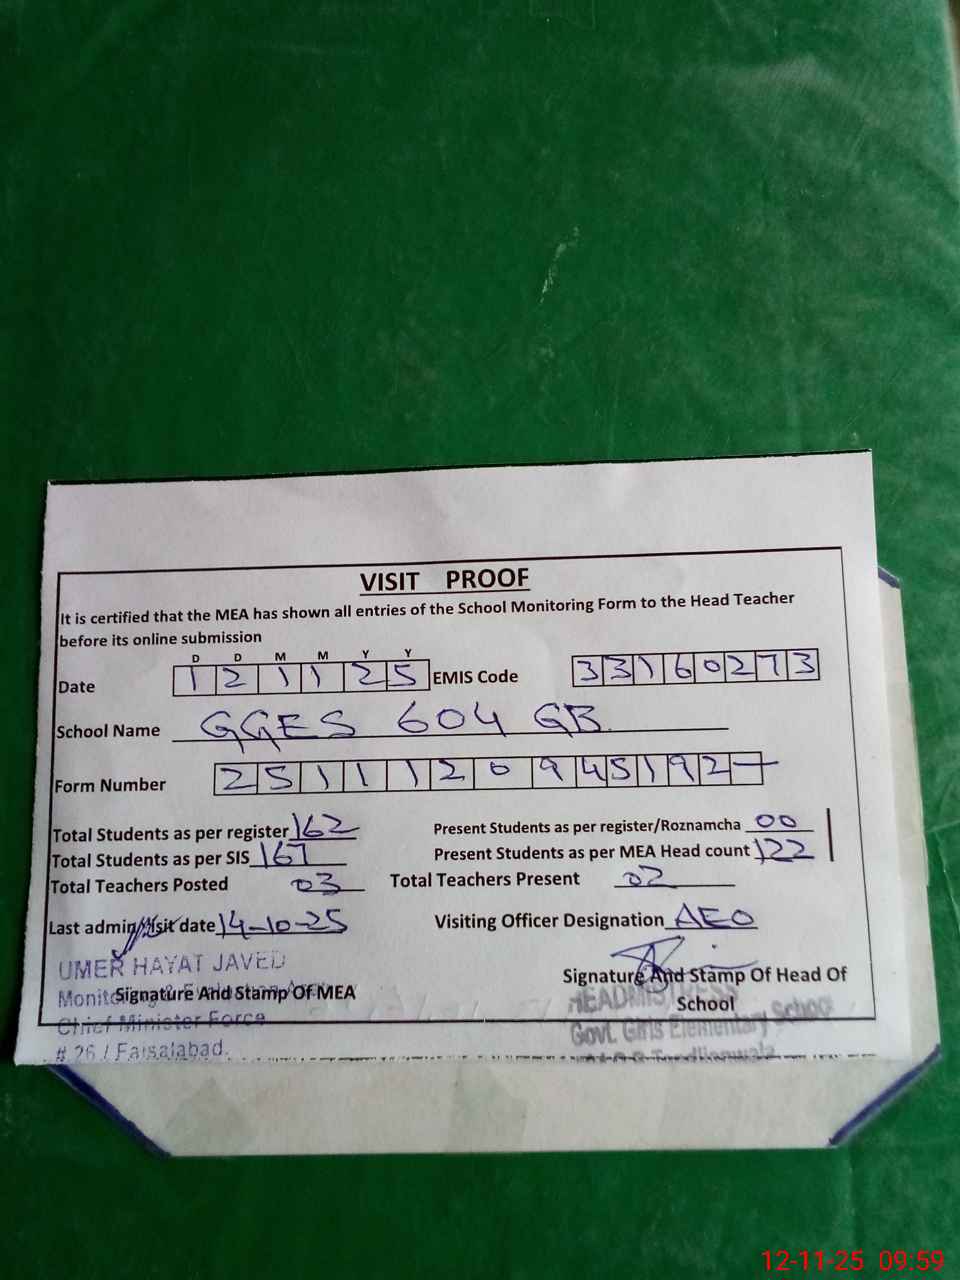 VISIT PROOF
It is certified that the MEA has shown all entries of the School Monitoring Form to the Head Teacher
before its online submission
D D M M Y Y
Date 1 2 1 1 2 5 EMIS Code 3 3 1 6 0 2 7 3
School Name GGES 604 GB
Form Number 2 5 1 1 1 2 0 9 4 5 1 9 2 -
Total Students as per register 162 Present Students as per register/Roznamcha 00
Total Students as per SIS 167 Present Students as per MEA Head count 122
Total Teachers Posted 03 Total Teachers Present 02
Last admin visit date 14-10-25 Visiting Officer Designation AEO
UMER HAYAT JAVED
Signature And Stamp Of MEA
Chief Minister Force
# 26 / Faisalabad.
Signature And Stamp Of Head Of
School
HEADMISTRESS
Govt. Girls Elementary School
12-11-25 09:59